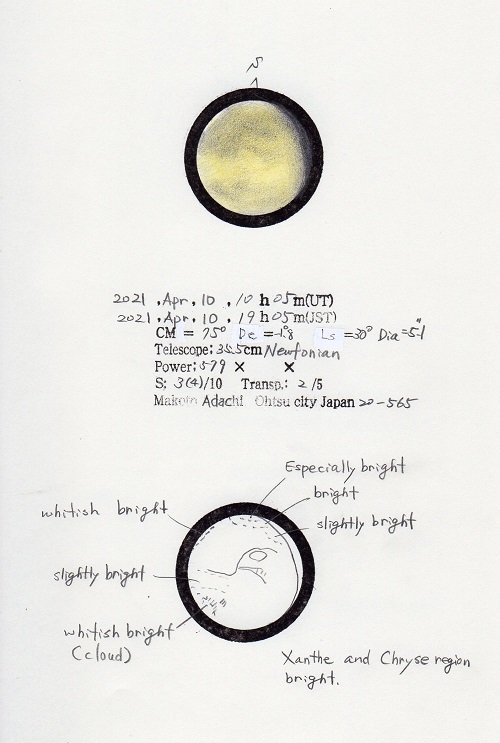 S
2021 . Apr . 10 . 10 h 05 m(UT)
2021 . Apr . 10 . 19 h 05 m(JST)
CM = 75° De = -1.8° Ls = 30° Dia = 5.1"
Telescope: 35.5cm Newtonian
Power: 579 × ×
S: 3(4)/10 Transp.: 2 /5
Makoto Adachi Ohtsu city Japan 20-565
Especially bright
bright
whitish bright
slightly bright
slightly bright
whitish bright
(cloud)
Xanthe and Chryse region
bright.